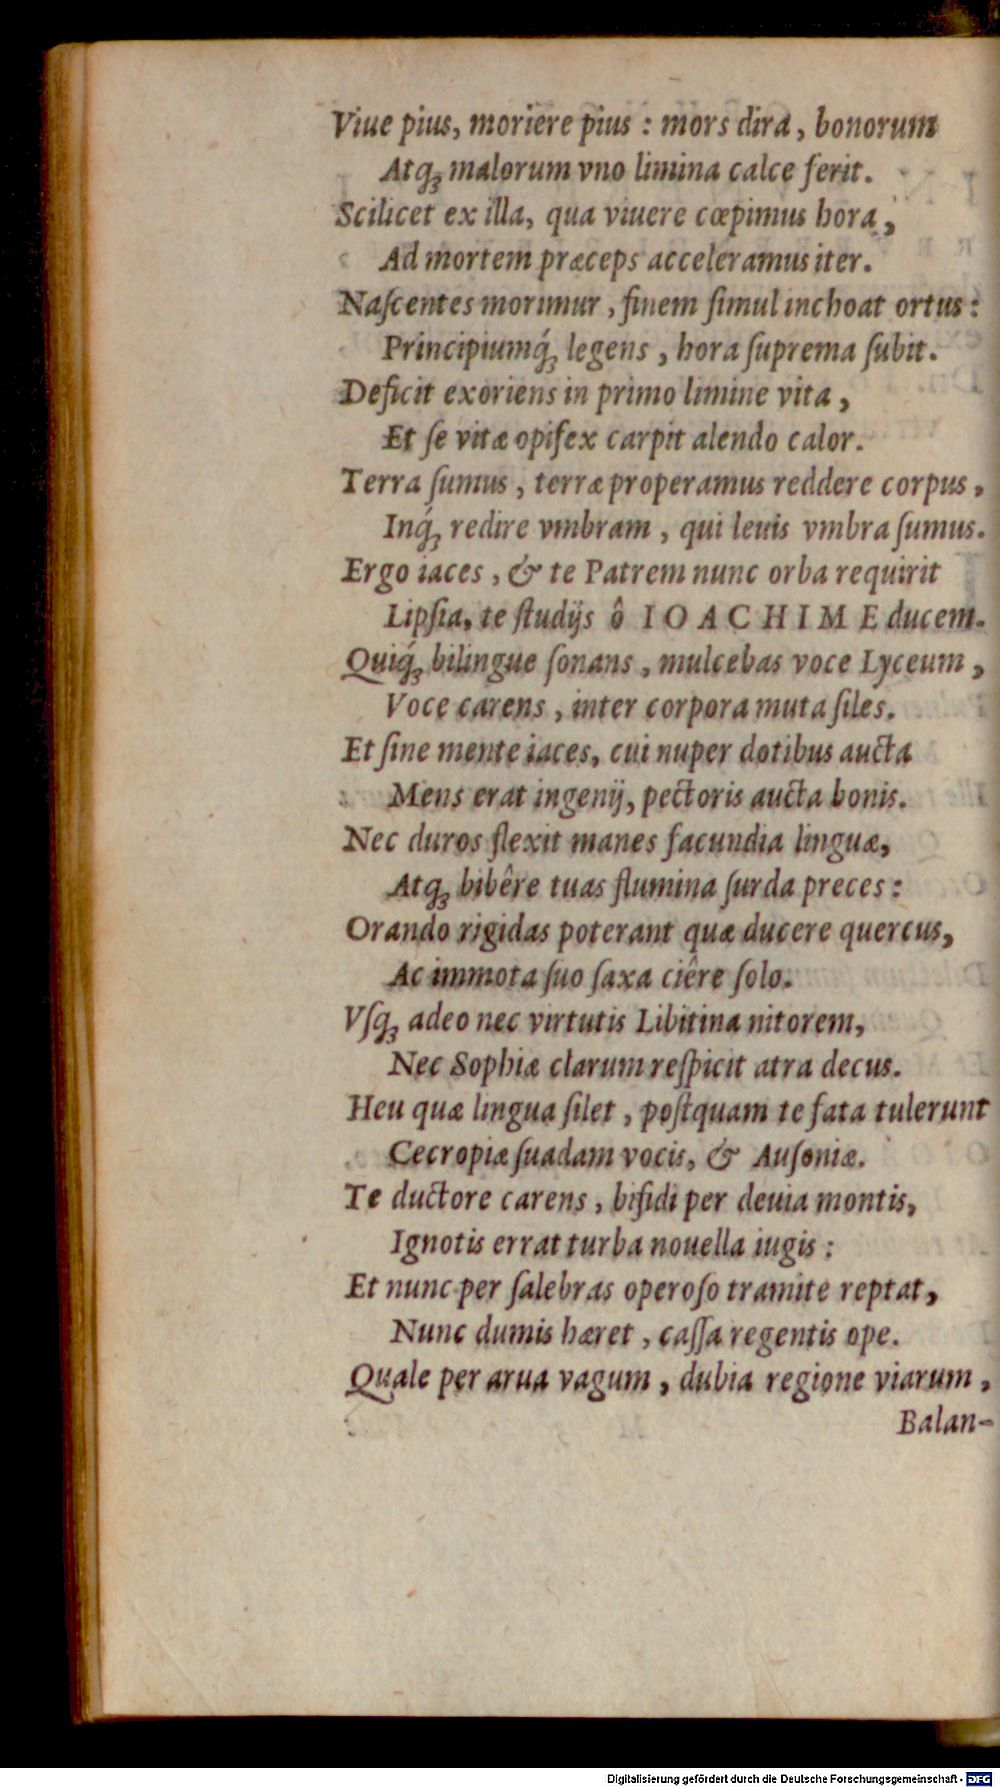 Viue pius, moriere pius : mors dira, bonorum
Atq́ꝫ malorum vno limina calce ferit.
Scilicet ex illa, qua viuere cœpimus hora,
Ad mortem præceps acceleramus iter.
Naſcentes morimur, finem ſimul inchoat ortus :
Principiumq́ꝫ legens, hora ſuprema ſubit.
Deficit exoriens in primo limine vita,
Et ſe vitæ opifex carpit alendo calor.
Terra ſumus, terræ properamus reddere corpus,
Inq́ꝫ redire vmbram, qui leuis vmbra ſumus.
Ergo iaces, & te Patrem nunc orba requirit
Lipſia, te ſtudijs ô IOACHIME ducem.
Quiq́ꝫ bilingue ſonans, mulcebas voce Lyceum,
Voce carens, inter corpora muta ſiles.
Et ſine mente iaces, cui nuper dotibus aucta
Mens erat ingenij, pectoris aucta bonis.
Nec duros flexit manes facundia linguæ,
Atqꝫ bibêre tuas flumina ſurda preces :
Orando rigidas poterant quæ ducere quercus,
Ac immota ſuo ſaxa ciêre ſolo.
Vſqꝫ adeo nec virtutis Libitina nitorem,
Nec Sophiæ clarum reſpicit atra decus.
Heu quæ lingua ſilet, poſtquam te fata tulerunt
Cecropiæ ſuadam vocis, & Auſoniæ.
Te ductore carens, bifidi per deuia montis,
Ignotis errat turba nouella iugis :
Et nunc per ſalebras operoſo tramite reptat,
Nunc dumis hæret, caſſa regentis ope.
Quale per arua vagum, dubia regione viarum,
Balan-
Digitalisierung gefördert durch die Deutsche Forschungsgemeinschaft - DFG